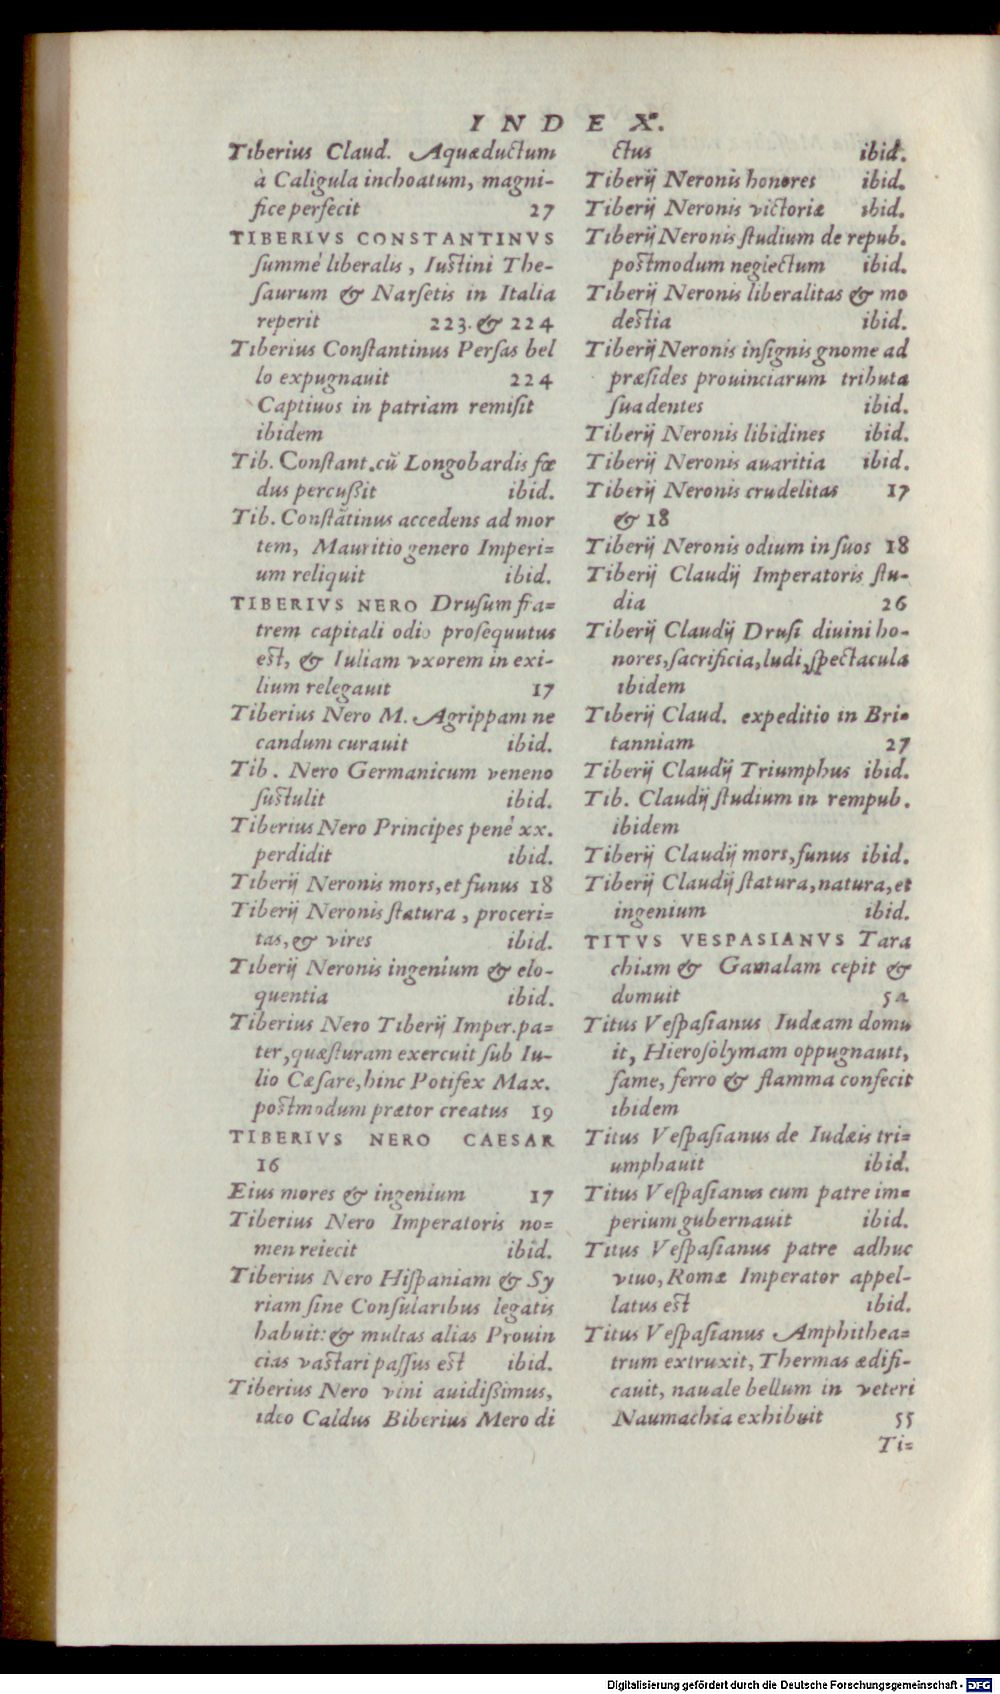 INDEX.
Tiberius Claud. Aquæductum
à Caligula inchoatum, magni-
fice perfecit 27
TIBERIVS CONSTANTINVS
ſummè liberalis, Iuſtini The-
ſaurum & Narſetis in Italia
reperit 223. & 224
Tiberius Conſtantinus Perſas bel
lo expugnauit 224
Captiuos in patriam remiſit
ibidem
Tib. Conſtant. cũ Longobardis fœ
dus percußit ibid.
Tib. Conſtãtinus accedens ad mor
tem, Mauritio genero Imperi=
um reliquit ibid.
TIBERIVS NERO Druſum fra=
trem capitali odio proſequutus
eſt, & Iuliam vxorem in exi-
lium relegauit 17
Tiberius Nero M. Agrippam ne
candum curauit ibid.
Tib. Nero Germanicum veneno
ſuſtulit ibid.
Tiberius Nero Principes penè xx.
perdidit ibid.
Tiberij Neronis mors, et funus 18
Tiberij Neronis ſtatura, proceri=
tas, & vires ibid.
Tiberij Neronis ingenium & elo-
quentia ibid.
Tiberius Nero Tiberij Imper. pa-
ter, quæſturam exercuit ſub Iu-
lio Cæſare, hinc Potifex Max.
poſtmodum prætor creatus 19
TIBERIVS NERO CAESAR
16
Eius mores & ingenium 17
Tiberius Nero Imperatoris no=
men reiecit ibid.
Tiberius Nero Hiſpaniam & Sy
riam ſine Conſularibus legatis
habuit: & multas alias Prouin
cias vaſtari paſſus eſt ibid.
Tiberius Nero vini auidißimus,
ideo Caldus Biberius Mero di
ctus ibid.
Tiberij Neronis honores ibid.
Tiberij Neronis victoriæ ibid.
Tiberij Neronis ſtudium de repub.
poſtmodum neglectum ibid.
Tiberij Neronis liberalitas & mo
deſtia ibid.
Tiberij Neronis inſignis gnome ad
præſides prouinciarum tributa
ſuadentes ibid.
Tiberij Neronis libidines ibid.
Tiberij Neronis auaritia ibid.
Tiberij Neronis crudelitas 17
& 18
Tiberij Neronis odium in ſuos 18
Tiberij Claudij Imperatoris ſtu-
dia 26
Tiberij Claudij Druſi diuini ho-
nores, ſacrificia, ludi, ſpectacula
ibidem
Tiberij Claud. expeditio in Bri-
tanniam 27
Tiberij Claudij Triumphus ibid.
Tib. Claudij ſtudium in rempub.
ibidem
Tiberij Claudij mors, funus ibid.
Tiberij Claudij ſtatura, natura, et
ingenium ibid.
TITVS VESPASIANVS Tara
chiam & Gamalam cepit &
domuit 54
Titus Veſpaſianus Iudæam domu
it, Hieroſolymam oppugnauit,
fame, ferro & flamma confecit
ibidem
Titus Veſpaſianus de Iudæis tri=
umphauit ibid.
Titus Veſpaſianus cum patre im=
perium gubernauit ibid.
Titus Veſpaſianus patre adhuc
viuo, Romæ Imperator appel-
latus eſt ibid.
Titus Veſpaſianus Amphithea=
trum extruxit, Thermas ædifi-
cauit, nauale bellum in veteri
Naumachia exhibuit 55
Ti=
Digitalisierung gefördert durch die Deutsche Forschungsgemeinschaft - DFG